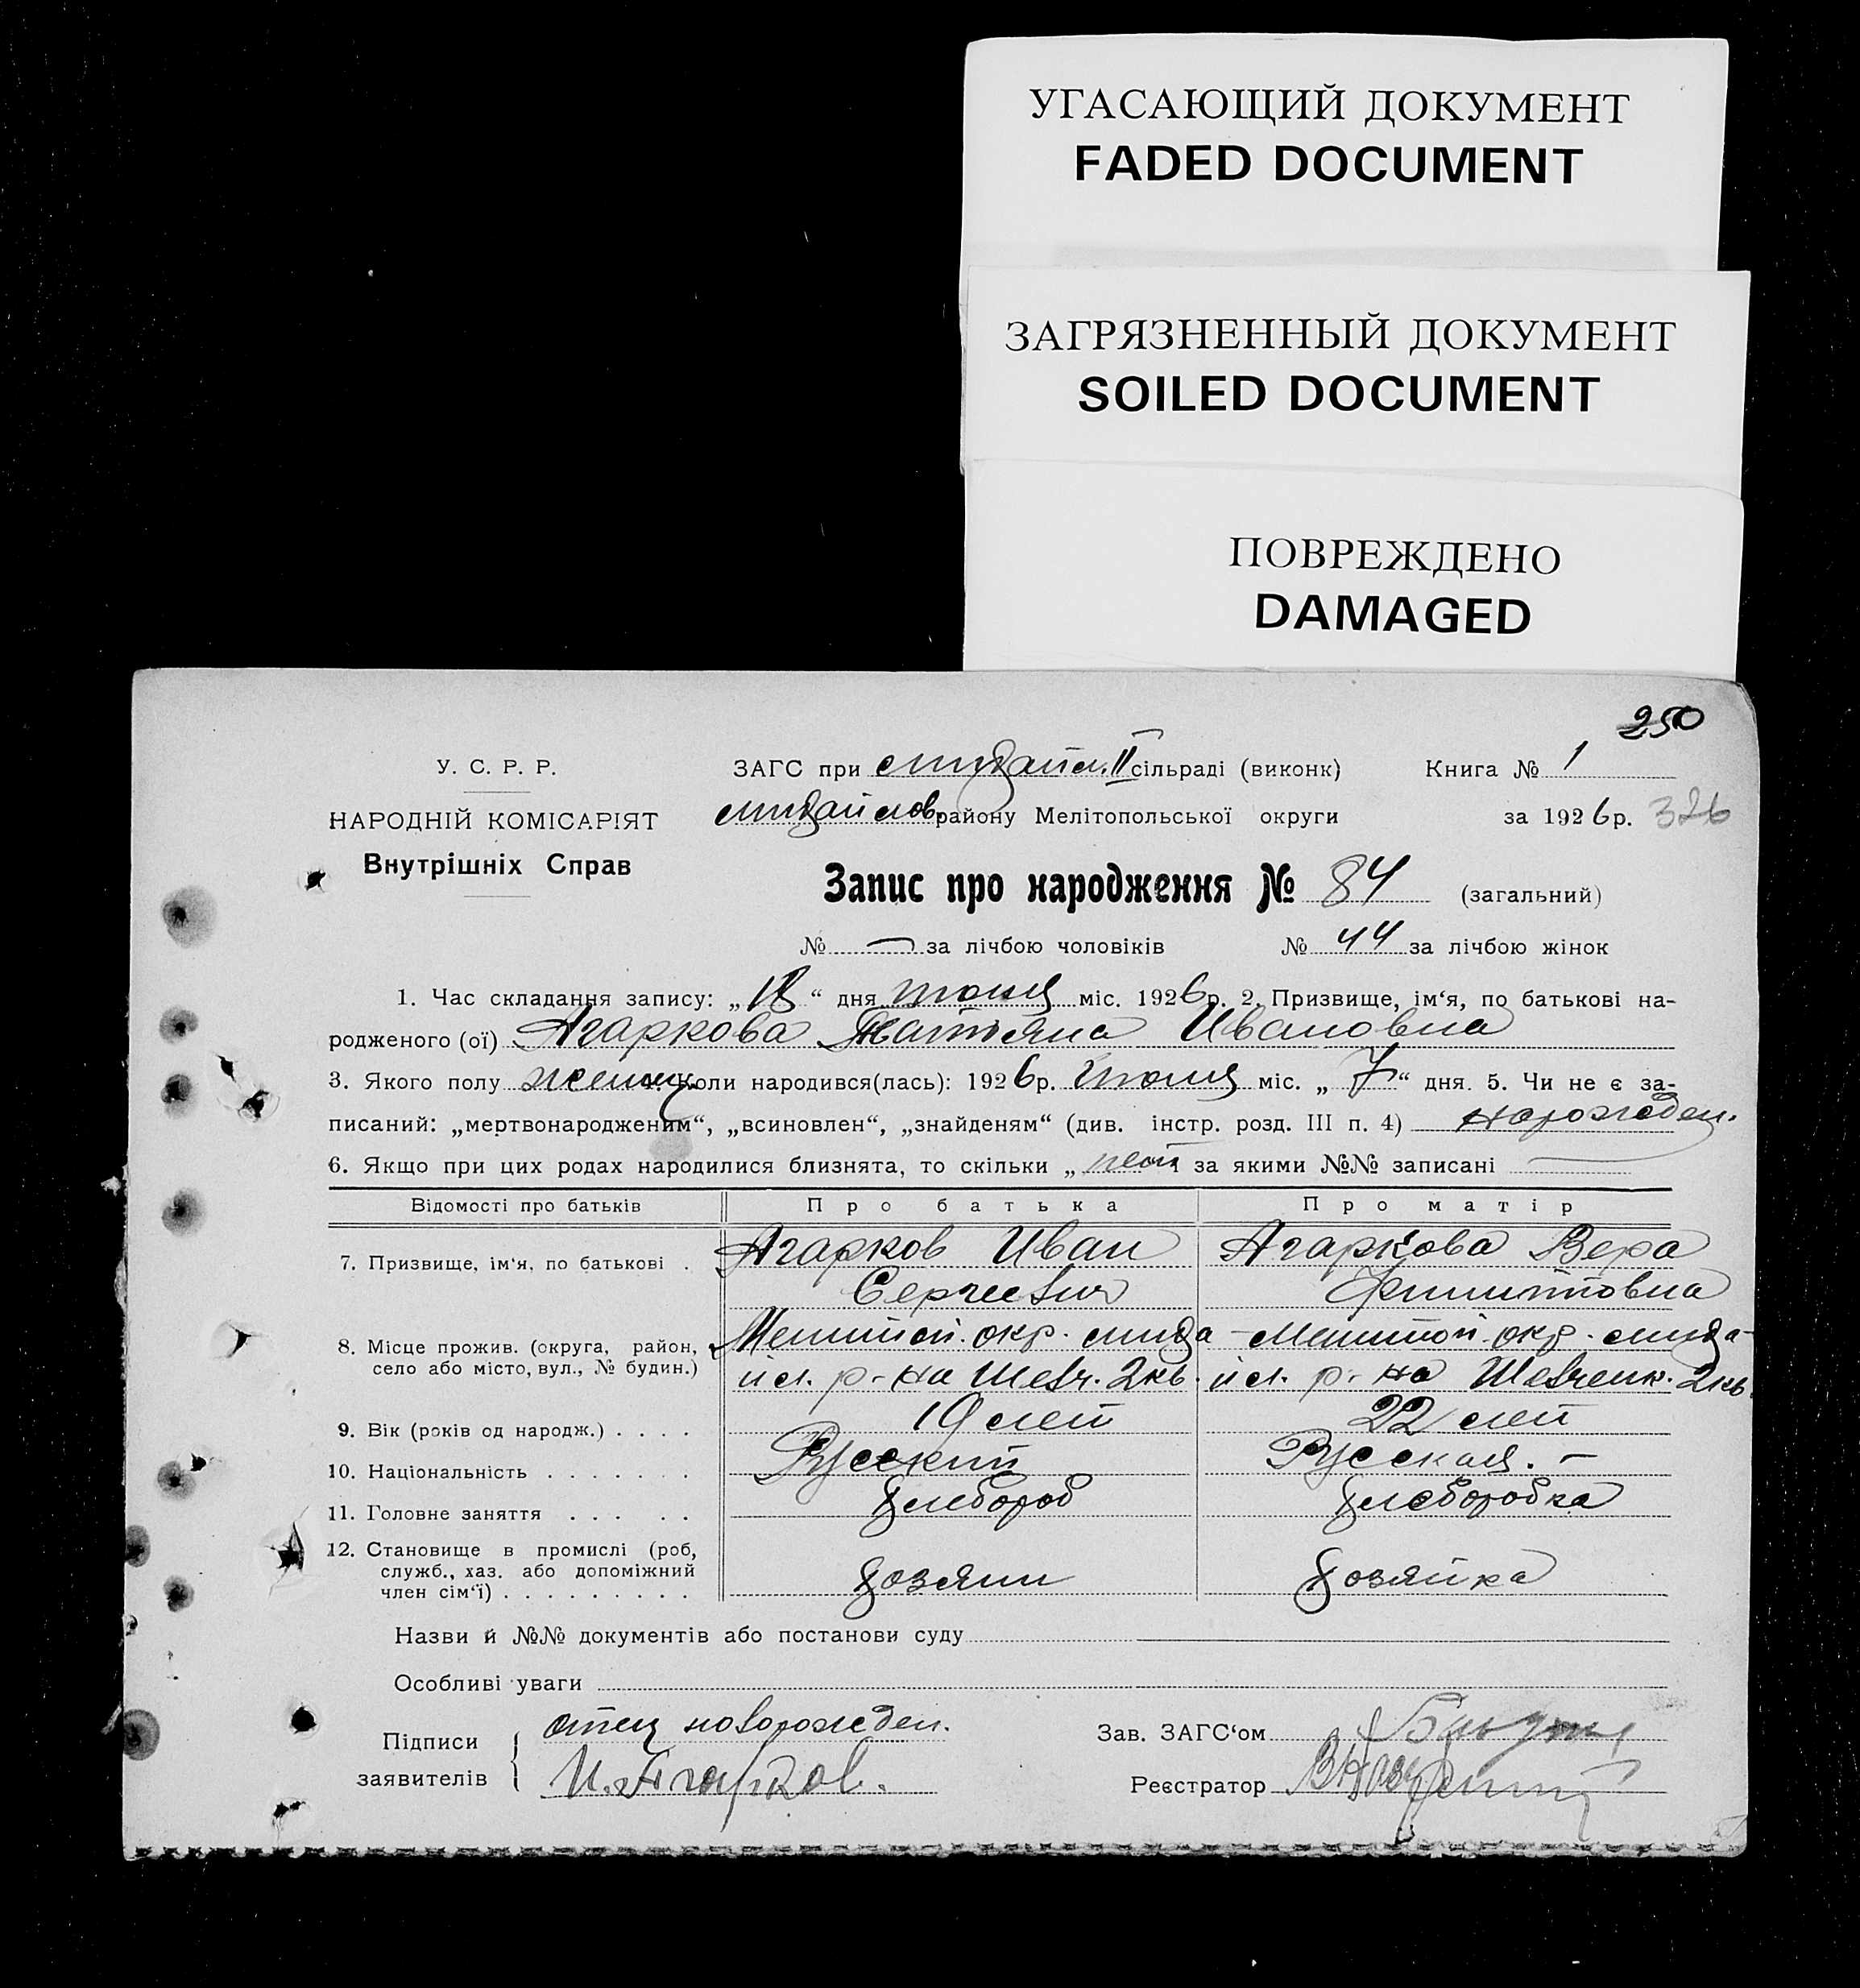 УГАСАЮЩИЙ ДОКУМЕНТ
FADED DOCUMENT
ЗАГРЯЗНЕННЫЙ ДОКУМЕНТ
SOILED DOCUMENT
ПОВРЕЖДЕНО
DAMAGED
250
У. С. Р. Р.
НАРОДНІЙ КОМІСАРІЯТ
Внутрішніх Справ
ЗАГС при Михайл. II сільраді (виконк)
Книга № 1
Михайлов. району Мелітопольської округи
за 1926 р. 326
Запис про народження № 84 (загальний)
№ — за лічбою чоловіків № 44 за лічбою жінок
1. Час складання запису: „18“ дня июня міс. 1926 р. 2. Призвище, ім‘я, по батькові на-
родженого (ої) Агаркова Татьяна Ивановна
3. Якого полу женск. Коли народився(лась): 1926 р. июня міс. „7“ дня. 5. Чи не є за-
писаний: „мертвонародженим“, „всиновлен“, „знайденям“ (див. інстр. розд. III п. 4) нарожден.
6. Якщо при цих родах народилися близнята, то скільки „нет за якими №№ записані —
Відомості про батьків Про батька Про матір
7. Призвище, ім‘я, по батькові . Агарков Иван Агаркова Вера
Сергеевич Филипповна
8. Місце прожив. (округа, район, Мелитоп. окр. Миха- Мелитоп. окр. Миха-
село або місто, вул., № будин.) йл. р-на Шевч. 2кв. йл. р-на Шевченк. 2кв.
9. Вік (років од народж.) . . . . 19 лет 22 лет
10. Національність . . . . . . . Русский Русская. —
11. Головне заняття . . . . . Хлебороб Хлеборобка
12. Становище в промислі (роб,
служб., хаз. або допоміжний
член сім‘ї) . . . . . . . . . Хозяин Хозяйка
Назви й №№ документів або постанови суду
Особливі уваги
Підписи заявителів
отец новорожден.
И. Агарков.
Зав. ЗАГС‘ом
Реєстратор